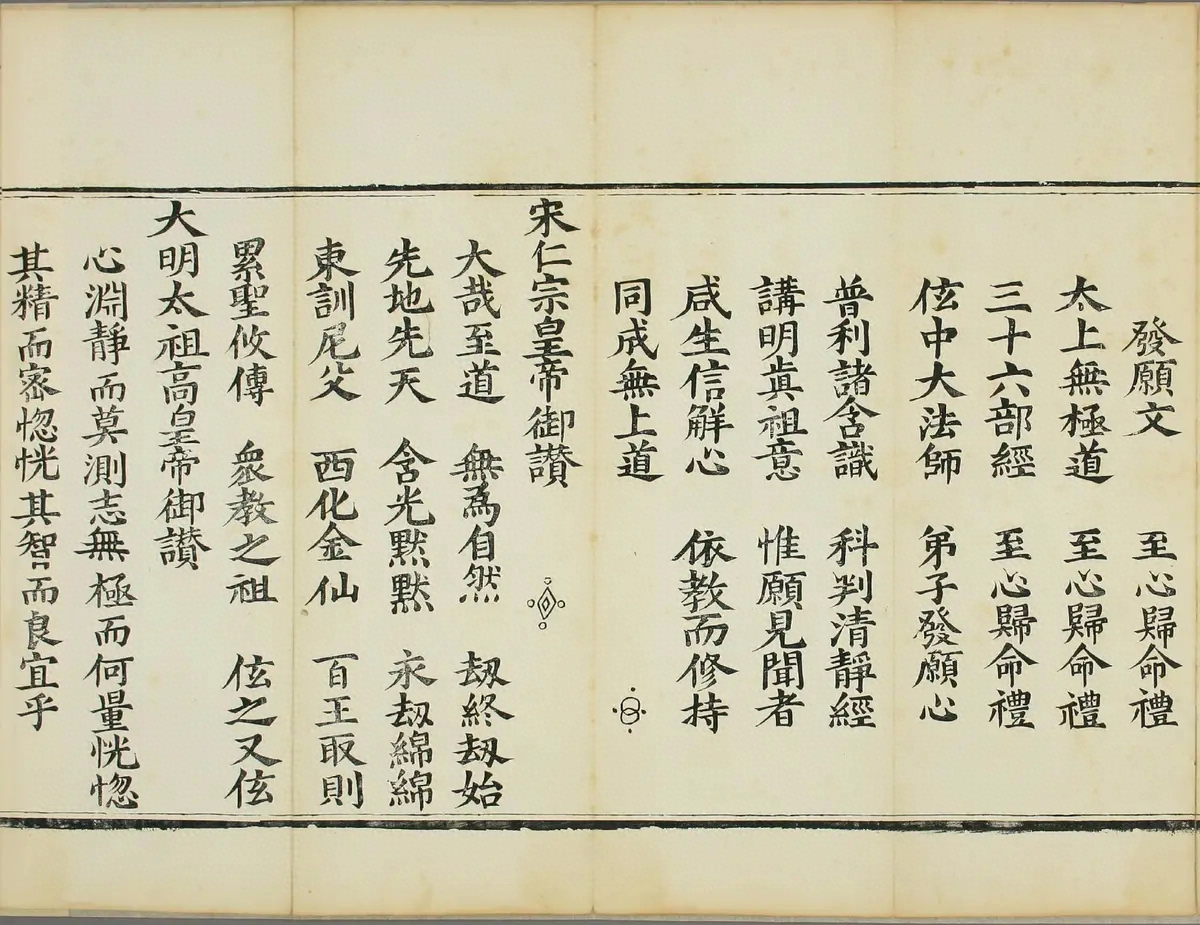 發願文　至心歸命禮
太上無極道　至心歸命禮
三十六部經　至心歸命禮
伭中大法師　弟子發願心
普利諸含識　科判清靜經
講明眞祖意　惟願見聞者
咸生信解心　依教而修持
同成無上道
宋仁宗皇帝御讚
大哉至道　無為自然　刼終刼始
先地先天　含光黙黙　永刼綿綿
東訓尼父　西化金仙　百王取則
累聖攸傳　衆教之祖　伭之又伭
大明太祖高皇帝御讚
心淵靜而莫測志無極而何量恍惚
其精而密惚恍其智而良宜乎